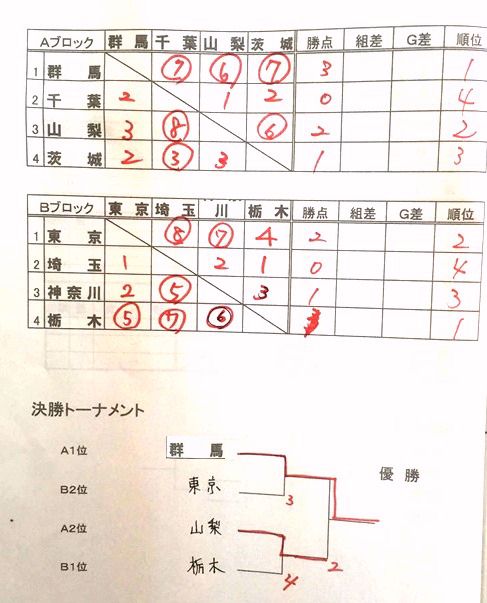 Aブロック 群馬 千葉 山梨 茨城 勝点 組差 G差 順位
1 群馬 ⑦ ⑥ ⑦ 3 1
2 千葉 2 1 2 0 4
3 山梨 3 ⑧ ⑥ 2 2
4 茨城 2 ③ 3 1 3
Bブロック 東京 埼玉 川 栃木 勝点 組差 G差 順位
1 東京 ⑧ ⑦ 4 2 2
2 埼玉 1 2 1 0 4
3 神奈川 2 ⑤ 3 1 3
4 栃木 ⑤ ⑦ ⑥ 1
決勝トーナメント
A1位 群馬
優勝
B2位 東京
3
A2位 山梨
B1位 栃木
4 2